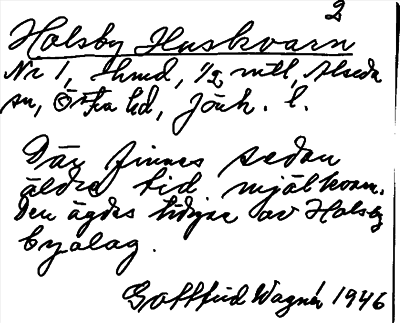 2
Holsby Huskvarn
Nr 1, 1/2 mtl, Alseda
sn, Östra hd, Jönk. l.
Där finnes sedan
äldre tid mjölkvarn.
Den ägdes tidigare av Holsby
byalag.
Gottfrid Wagnér 1946